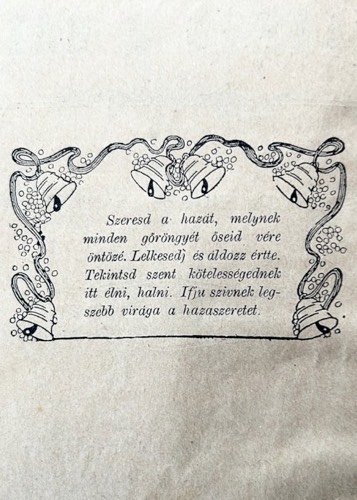 Szeresd a hazát, melynek
minden göröngyét őseid vére
öntözé. Lelkesedj és áldozz értte.
Tekintsd szent kötelességednek
itt élni, halni. Ifju szivnek leg-
szebb virága a hazaszeretet.